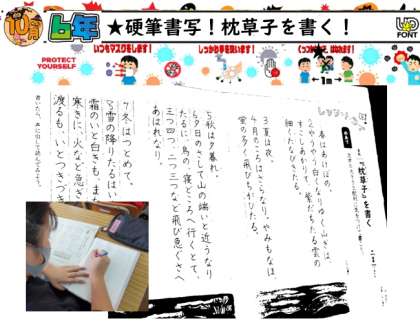 10月
6年
★硬筆書写！枕草子を書く！
UD
FONT
いつもマスクをします！
しっかり手を洗います！
PROTECT
YOURSELF
1m
『枕草子』を書く
春はあけぼの。
やうやう白くなりゆく山ぎは、
すこしあかりて、紫だちたる雲の
細くたなびきたる。
夏は夜。
月のころはさらなり。やみもなほ、
蛍の多く飛びちがひたる。
秋は夕暮れ。
夕日のさして山の端いと近うなり
たるに、烏の寝どころへ行くとて、
三つ四つ、二つ三つなど飛び急ぐさへ
あはれなり。
冬はつとめて。
雪の降りたるはい
霜のいと白きも、また
寒きに、火など急ぎ
渡るも、いとつきづき